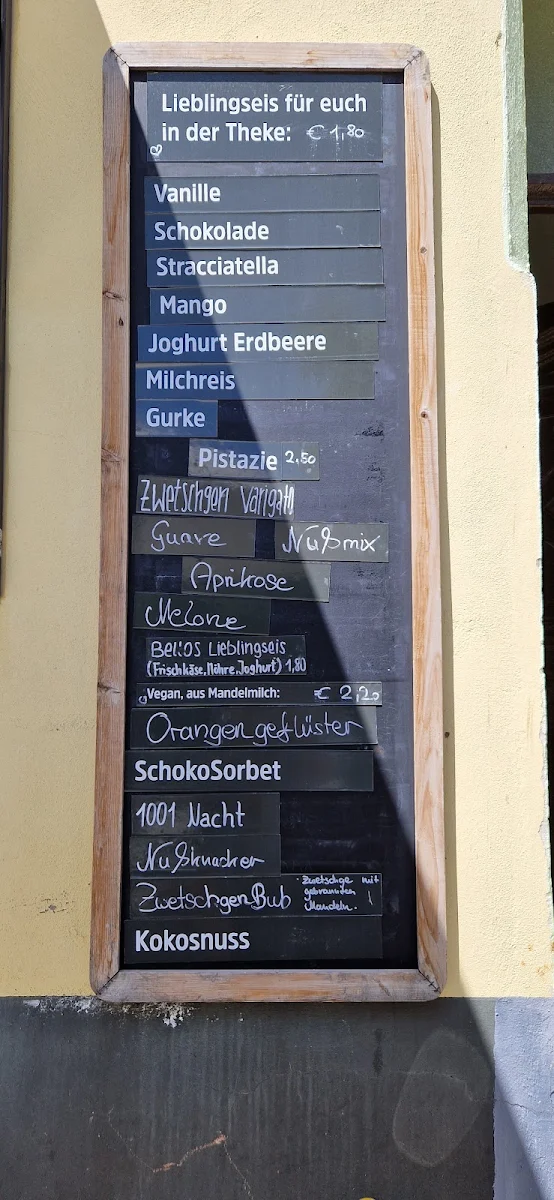 Lieblingseis für euch
in der Theke: € 1,80
Vanille
Schokolade
Stracciatella
Mango
Joghurt Erdbeere
Milchreis
Gurke
Pistazie 2,50
Zwetschgen Varigato
Guave Nußmix
Aprikose
Melone
Bellos Lieblingseis
(Frischkäse, Möhre, Joghurt) 1,80
Vegan, aus Mandelmilch: € 2,20
Orangengeflüster
SchokoSorbet
1001 Nacht
Nußknacker
ZwetschgenBub Zwetschge mit
gebrannten
Mandeln.
Kokosnuss